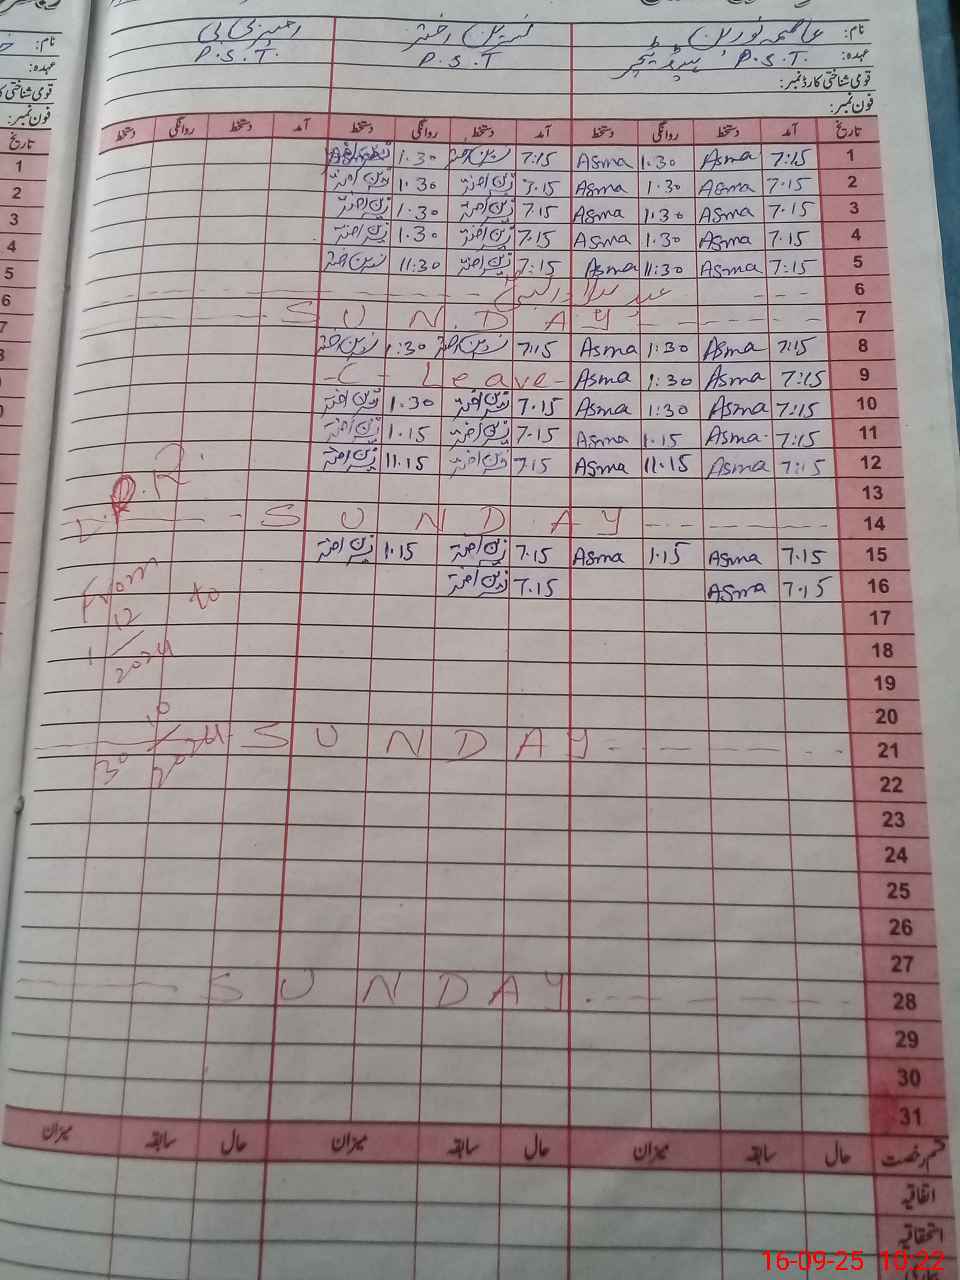 نام: عاصمہ نورین نسرین اختر
عہدہ: P.S.T. ہیڈ ٹیچر P.S.T P.S.T.
قومی شناختی کارڈ نمبر:
فون نمبر:
تاریخ آمد دستخط روانگی دستخط آمد دستخط روانگی دستخط آمد دستخط روانگی دستخط
1 7:15 Asma 1.30 Asma 7:15 نسرین اختر 1.30
2 7.15 Asma 1.30 Asma 7.15 نسرین اختر 1.30 نسرین اختر
3 7.15 Asma 1.30 Asma 7.15 نسرین اختر 1.30 نسرین اختر
4 7.15 Asma 1.30 Asma 7.15 نسرین اختر 1.30 نسرین اختر
5 7:15 Asma 11:30 Asma 7:15 نسرین اختر 11:30 نسرین اختر
6 عید میلاد النبی
7 SUNDAY
8 7:15 Asma 1:30 Asma 7:15 نسرین اختر 1:30 نسرین اختر
9 7:15 Asma 1:30 Asma C - Leave
10 7:15 Asma 1:30 Asma 7.15 نسرین اختر 1.30 نسرین اختر
11 7:15 Asma 1.15 Asma 7.15 نسرین اختر 1.15 نسرین اختر
12 7:15 Asma 11.15 Asma 7.15 نسرین اختر 11.15 نسرین اختر
13
14 SUNDAY
15 7.15 Asma 1.15 Asma 7.15 نسرین اختر 1.15 نسرین اختر
16 7.15 Asma 7.15 نسرین اختر
From to
17
18
2024
19
20
21 SUNDAY
22
23
24
25
26
27
28 SUNDAY
29
30
31
قسم رخصت حال سابقہ میزان حال سابقہ میزان حال سابقہ میزان
اتفاقیہ
استحقاقیہ
16-09-25 10:22